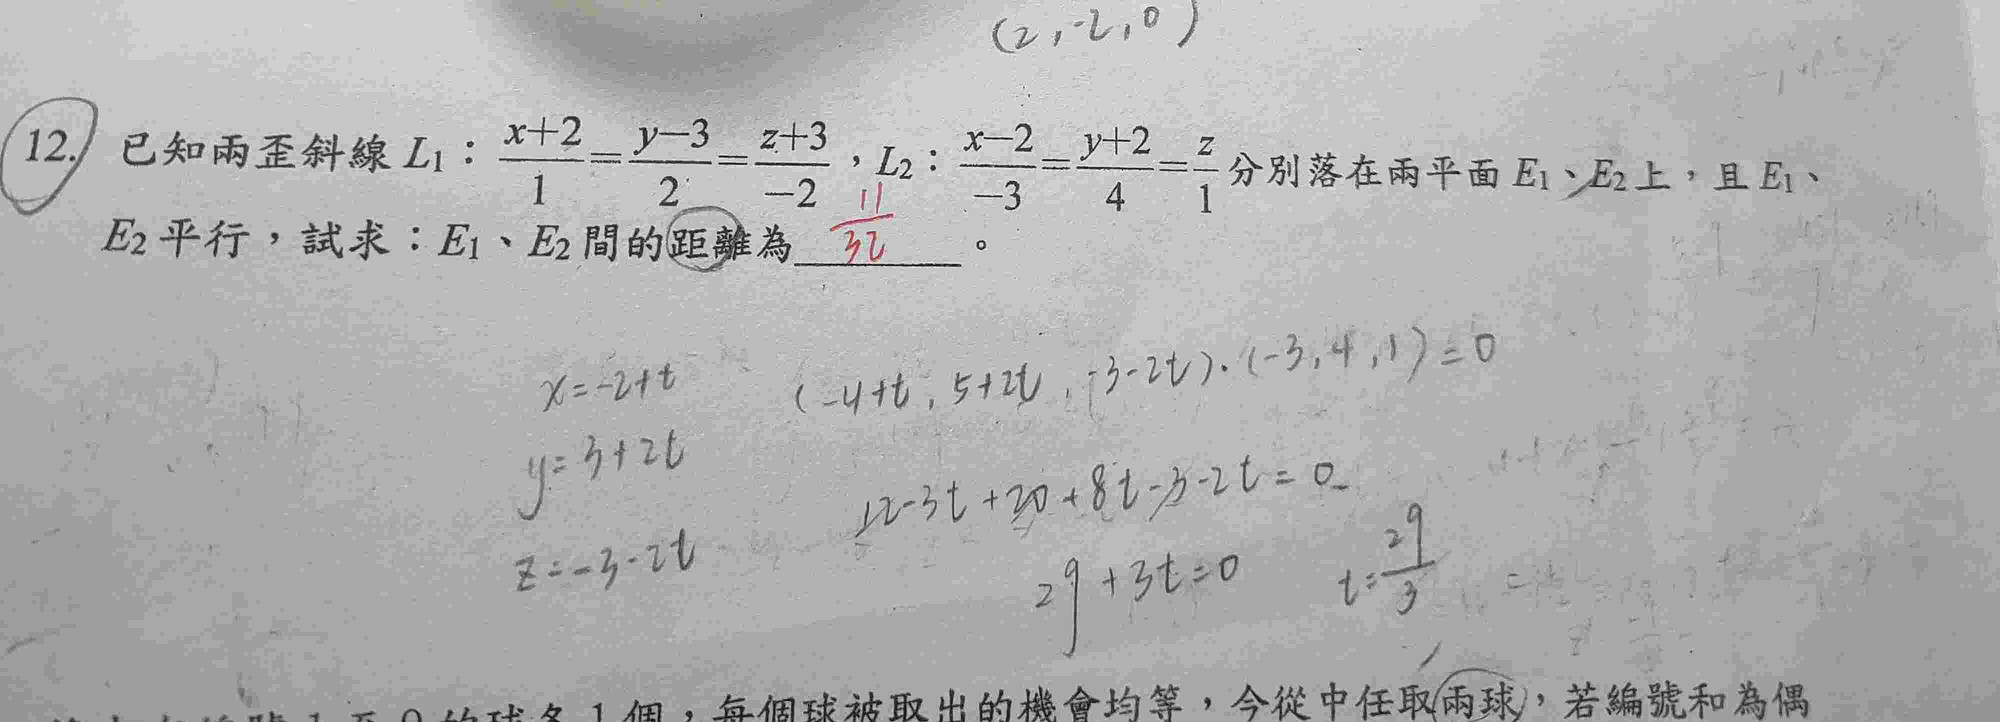 (2,-2,0)
12. 已知兩歪斜線 L1：x+2/1=y-3/2=z+3/-2，L2：x-2/-3=y+2/4=z/1 分別落在兩平面 E1、E2 上，且 E1、
E2 平行，試求：E1、E2 間的距離為 11/3√ 。
x=-2+t (-4+t, 5+2t, -3-2t)·(-3,4,1)=0
y=3+2t
12-3t+20+8t-3-2t=0
z=-3-2t
29+3t=0 t=29/3
1 個，每個球被取出的機會均等，今從中任取兩球，若編號和為偶